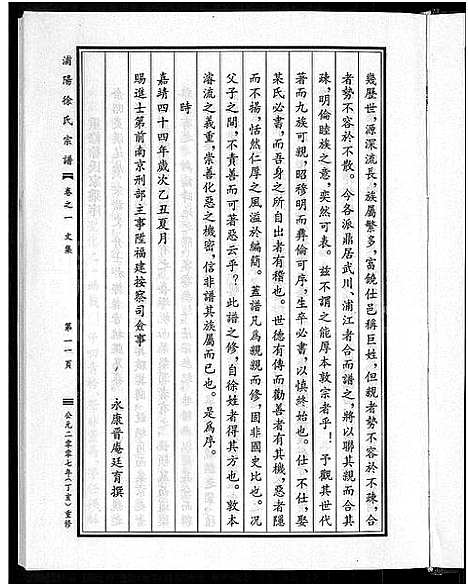 幾歷世，源深流長，族屬繁多，富饒仕邑稱巨姓，但親者勢不容於不疎，合
者勢不容於不散。今各派鼎居武川、浦江者合而譜之，將以聯其親而合其
疎，明倫睦族之意，奕然可表。茲不謂之能厚本敦宗者乎！予觀其世代
著而九族可親，昭穆明而彝倫可序，生卒必書，以慎終始也。仕、不仕，娶
某氏必書，而吾身之所自出者有稽也。世德有傳而勸善者有其機，惡者隱
而不揚，恬然仁厚之風溢於編簡。蓋譜凡為親親而修，固非國史比也。况
父子之間，不責善而可著惡云乎？此譜之修，自徐姓者得其方也。敦本
濬流之義重，崇善化惡之機密，信非譜其族屬而已也。是為序。
時
嘉靖四十四年歲次乙丑夏月
賜進士第前南京刑部主事陞福建按察司僉事
永康晉庵廷育撰
浦陽徐氏宗譜 卷之一 文集 第一一頁 公元二零零七年（丁亥）重修